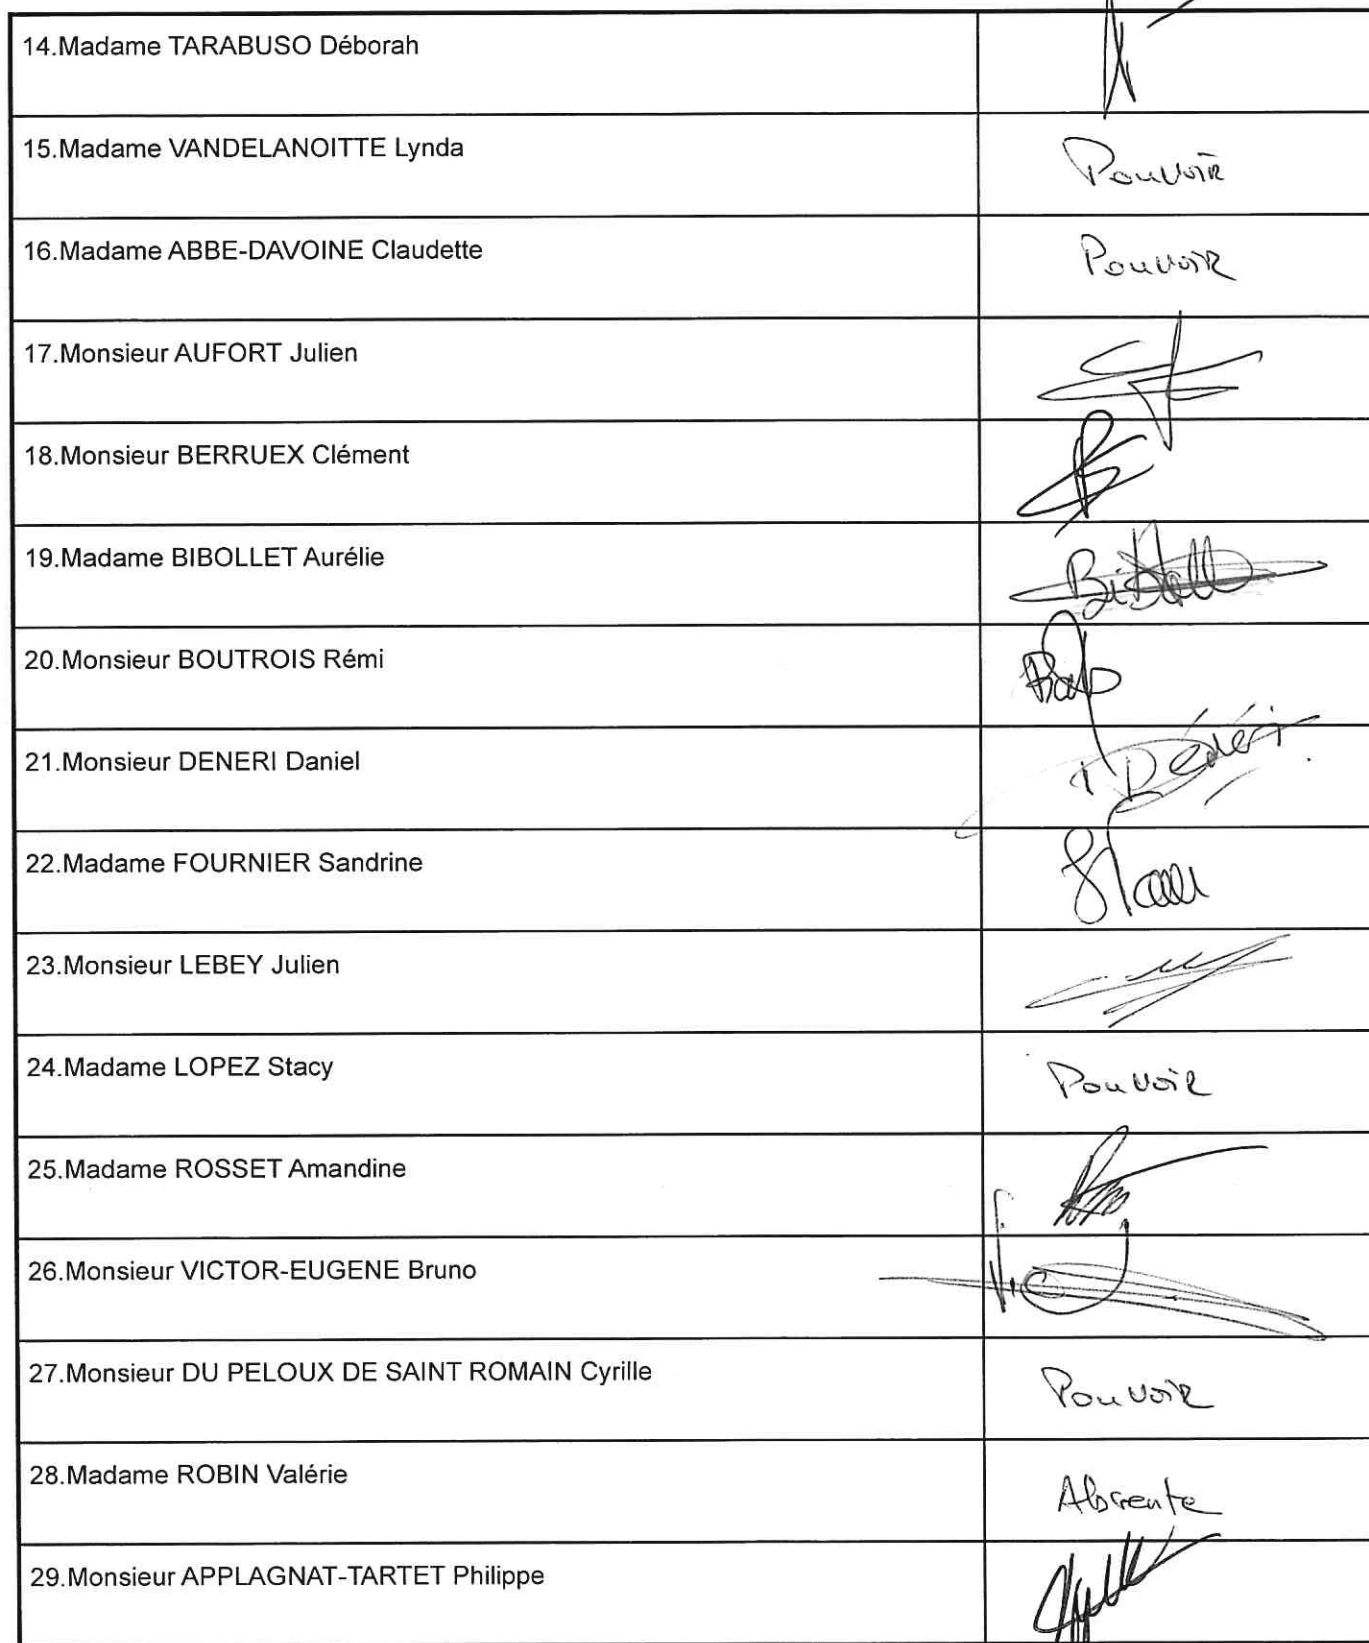 14.Madame TARABUSO Déborah
15.Madame VANDELANOITTE Lynda
Pouvoir
16.Madame ABBE-DAVOINE Claudette
Pouvoir
17.Monsieur AUFORT Julien
18.Monsieur BERRUEX Clément
19.Madame BIBOLLET Aurélie
20.Monsieur BOUTROIS Rémi
21.Monsieur DENERI Daniel
Dénéri
22.Madame FOURNIER Sandrine
23.Monsieur LEBEY Julien
24.Madame LOPEZ Stacy
Pouvoir
25.Madame ROSSET Amandine
26.Monsieur VICTOR-EUGENE Bruno
27.Monsieur DU PELOUX DE SAINT ROMAIN Cyrille
Pouvoir
28.Madame ROBIN Valérie
Absente
29.Monsieur APPLAGNAT-TARTET Philippe